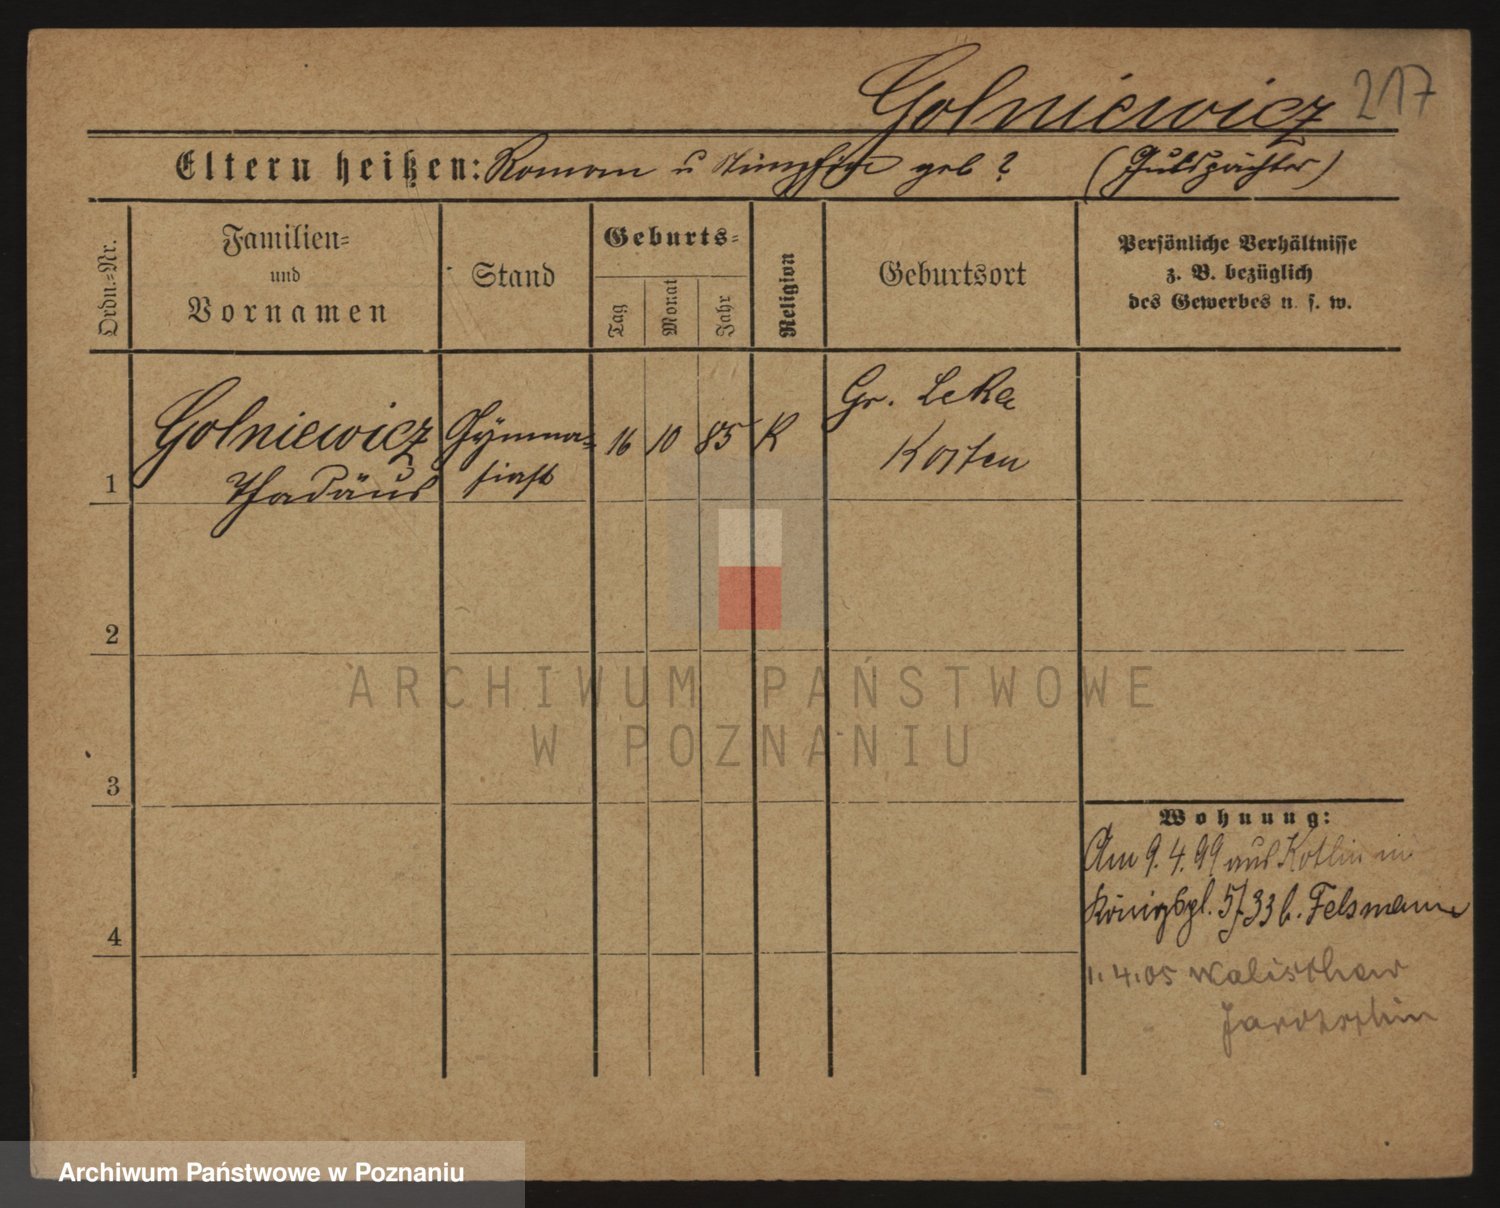 217
Golniewicz
Eltern heißen: Roman u geb ? (Gutspächter)
Ordn.-Nr.
Familien-
und
Vornamen
Stand
Geburts-
Tag
Monat
Jahr
Religion
Geburtsort
Persönliche Verhältnisse
z. B. bezüglich
des Gewerbes u. s. w.
1 Golniewicz Gymna- 16 10 85 K Gr. Leka
Thadäus siast Kosten
2
3
4
Wohnung:
Am 9.4.99 aus Kotlin in
Königspl. 5/33 b. Felsmann
1.4.05 Walischew
Jarotschin
ARCHIWUM PAŃSTWOWE
W POZNANIU
Archiwum Państwowe w Poznaniu